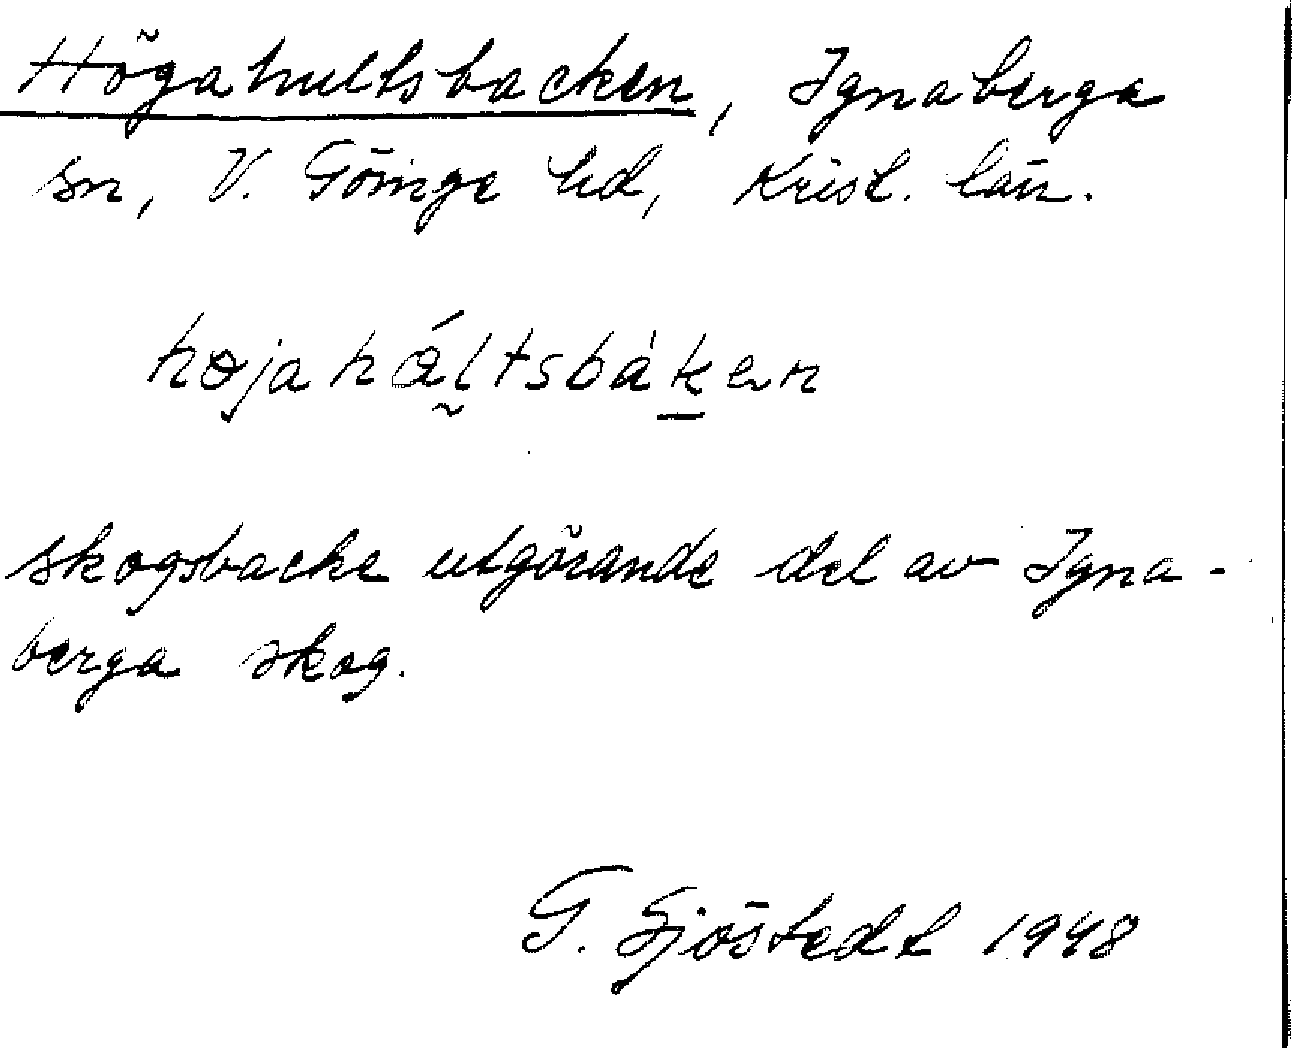 Högahultsbacken, Ignaberga
sn, V. Göinge hd, Krist. län.
højahál̰tsbàḵen
skogsbacke utgörande del av Igna-
berga skog.
G. Sjöstedt 1948